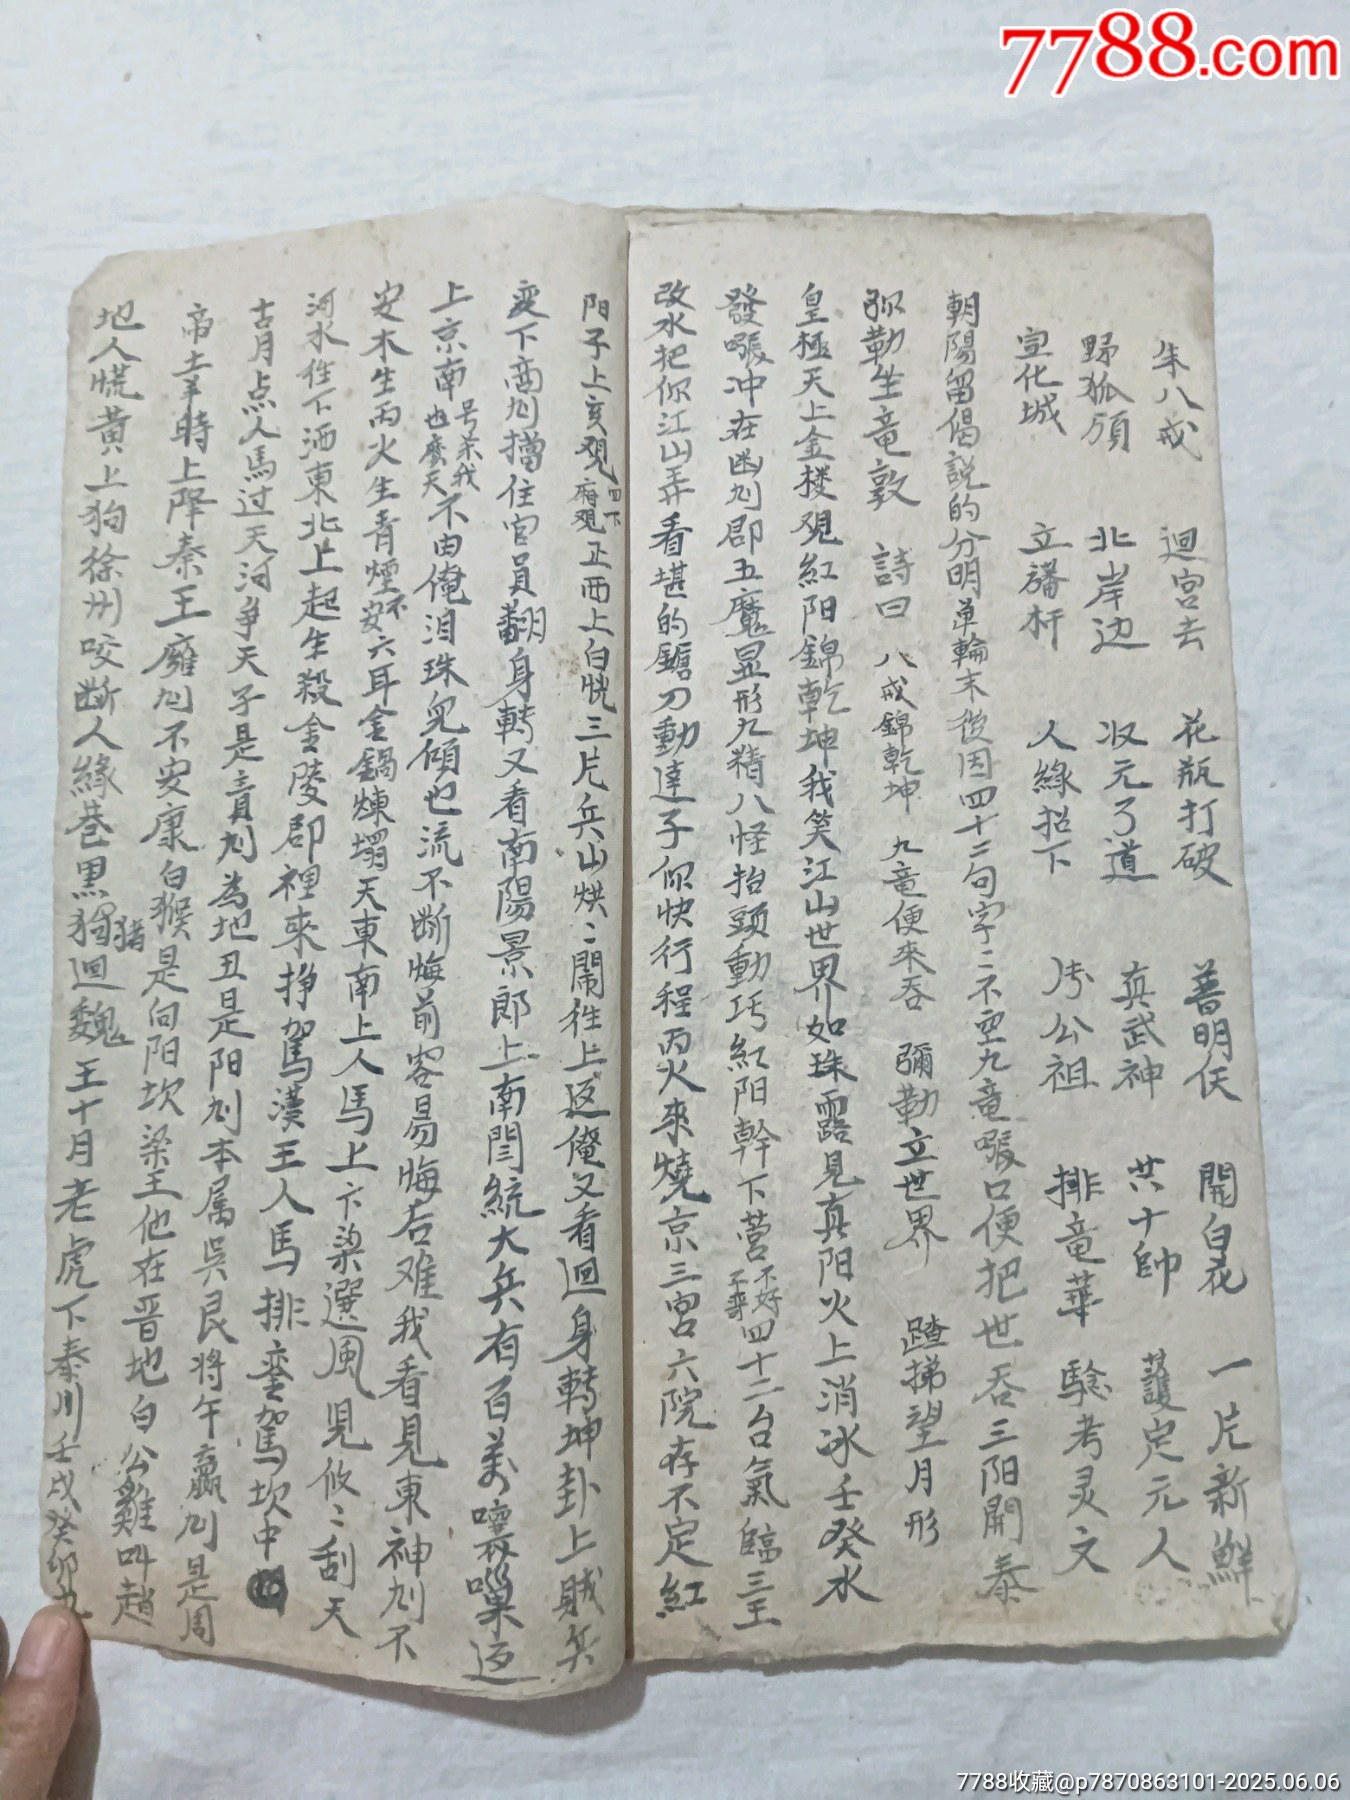 7788.com
朱八戒 迴宮去 花瓶打破 普明佛 開白花 一片新鮮
野狐嶺 北岸边 收元了道 真武神 共十帥 護定元人
宣化城 立旛杆 人緣招下 公祖 排竜華 驗考灵文
朝陽留偈說的分明單輪末後因四十二句字二不空九竜喉口便把世吞三阳開泰
弥勒生竜敦 詩曰 八戒錦乾坤 九竜便來吞 彌勒立世界 望月形
皇極天上金楼观紅阳錦乾坤我笑江山世界如珠露見真阳火上消冰壬癸水
發喉冲在幽州郡五魔显形九精八怪抬頭動巧紅阳幹下营不好了來四十二台氣臨三王
改水把你江山弄看堪的鎗刀動達子你快行程丙火來燒京三宮六院存不定紅
阳子上亥观四下府观正西上白恍三片兵山烘二鬧往上返俺又看迴身轉坤卦上賊兵
下商州擋住官員翻身轉又看南陽景郎上南閆統大兵有百萬嚷巢返
上京南号杀我也麼天不由俺泪珠兒傾也流不断悔前容易悔后难我看見東神州不
安木生丙火生青煙不安六耳金鍋煉塌天東南上人馬上卞梁選風見攸二刮天
河水往下洒東北上起生殺金陵郡裡來挣駕漢王人馬排鑾駕坎中
古月点人馬过天河争天子是青州為地丑是阳州本属吳艮將午嬴州是周
帝主羊時上降秦王雍州不安康白猴是向阳坎梁王他在晋地白公雞叫趙
地人慌黃上狗徐州咬断人緣巷黑狗猪迴魏王十月老虎下秦川壬戌癸卯九
7788收藏@p7870863101-2025.06.06